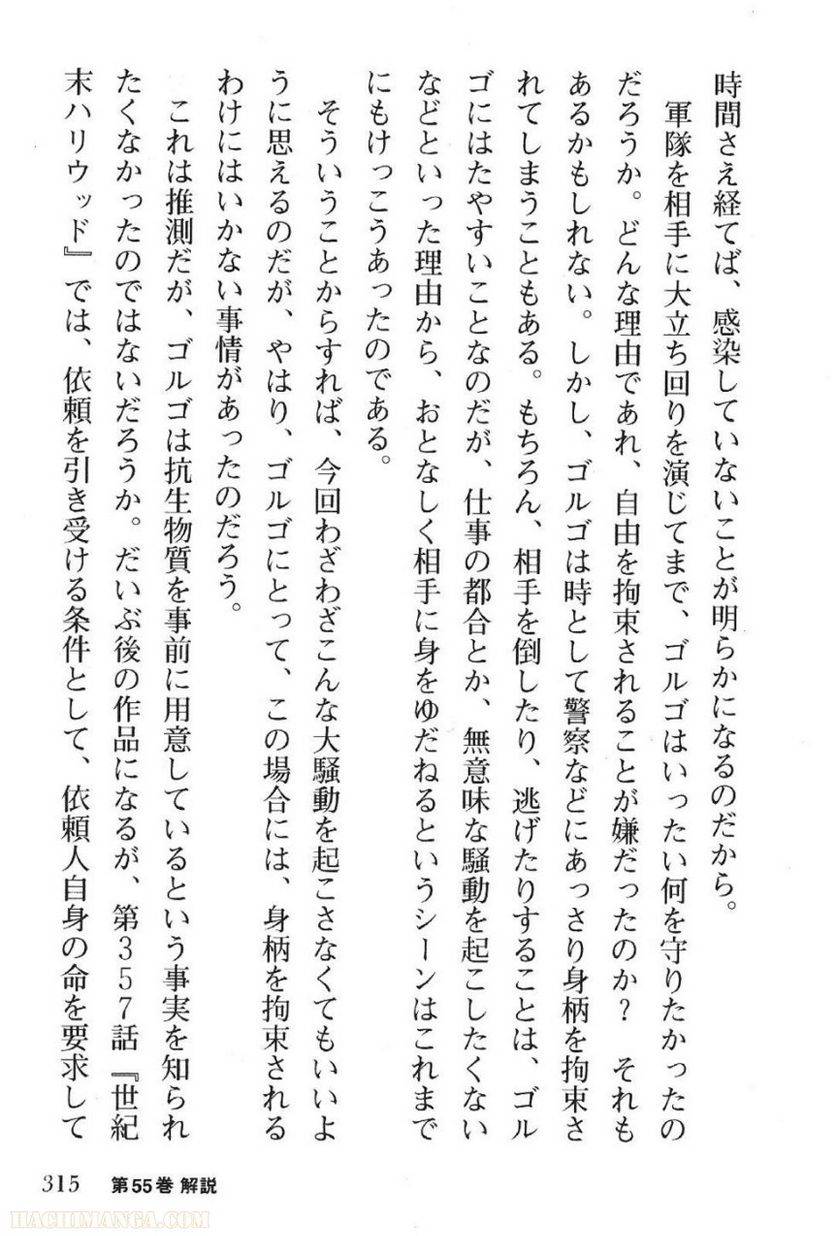 時間さえ経てば、感染していないことが明らかになるのだから。
　軍隊を相手に大立ち回りを演じてまで、ゴルゴはいったい何を守りたかったの
だろうか。どんな理由であれ、自由を拘束されることが嫌だったのか？　それも
あるかもしれない。しかし、ゴルゴは時として警察などにあっさり身柄を拘束さ
れてしまうこともある。もちろん、相手を倒したり、逃げたりすることは、ゴル
ゴにはたやすいことなのだが、仕事の都合とか、無意味な騒動を起こしたくない
などといった理由から、おとなしく相手に身をゆだねるというシーンはこれまで
にもけっこうあったのである。
　そういうことからすれば、今回わざわざこんな大騒動を起こさなくてもいいよ
うに思えるのだが、やはり、ゴルゴにとって、この場合には、身柄を拘束される
わけにはいかない事情があったのだろう。
　これは推測だが、ゴルゴは抗生物質を事前に用意しているという事実を知られ
たくなかったのではないだろうか。だいぶ後の作品になるが、第３５７話『世紀
末ハリウッド』では、依頼を引き受ける条件として、依頼人自身の命を要求して
315　第55巻 解説
HACHIMANGA.COM